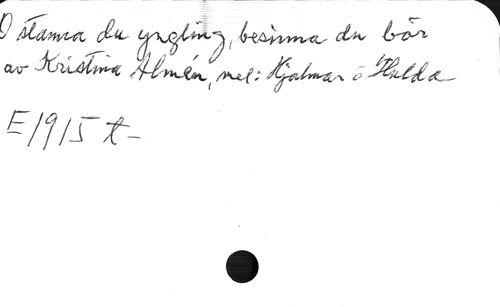 O stanna du yngling, besinna du bör
av Kristina Almén, mel: Hjalmar o Hulda
E 1915 t –